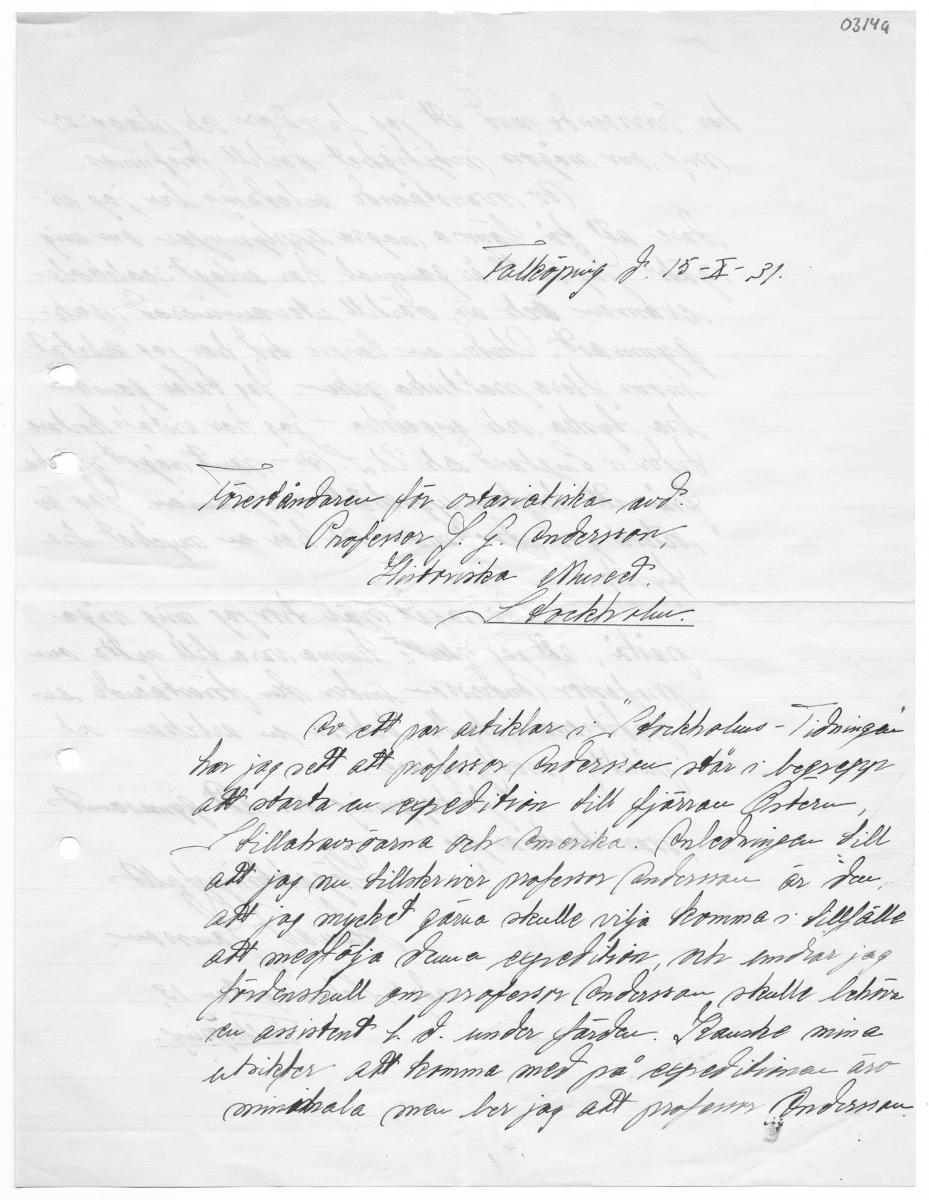 0314a
Falköping d. 15-X-31.
Föreståndaren för ostasiatiska avd.
Professor J. G. Andersson,
Historiska Museet.
Stockholm.
Av ett par artiklar i "Stockholms-Tidningen"
har jag sett att professor Andersson står i begrepp
att starta en expedition till fjärran Östern,
Stillahavsöarna och Amerika. Anledningen till
att jag nu tillskriver professor Andersson är den,
att jag mycket gärna skulle vilja komma i tillfälle
att medfölja denna expedition, och undrar jag
fördenskull om professor Andersson skulle behöva
en assistent t. d. under färden. Kanske mina
utsikter att komma med på expeditionen äro
minimala men ber jag att professor Andersson